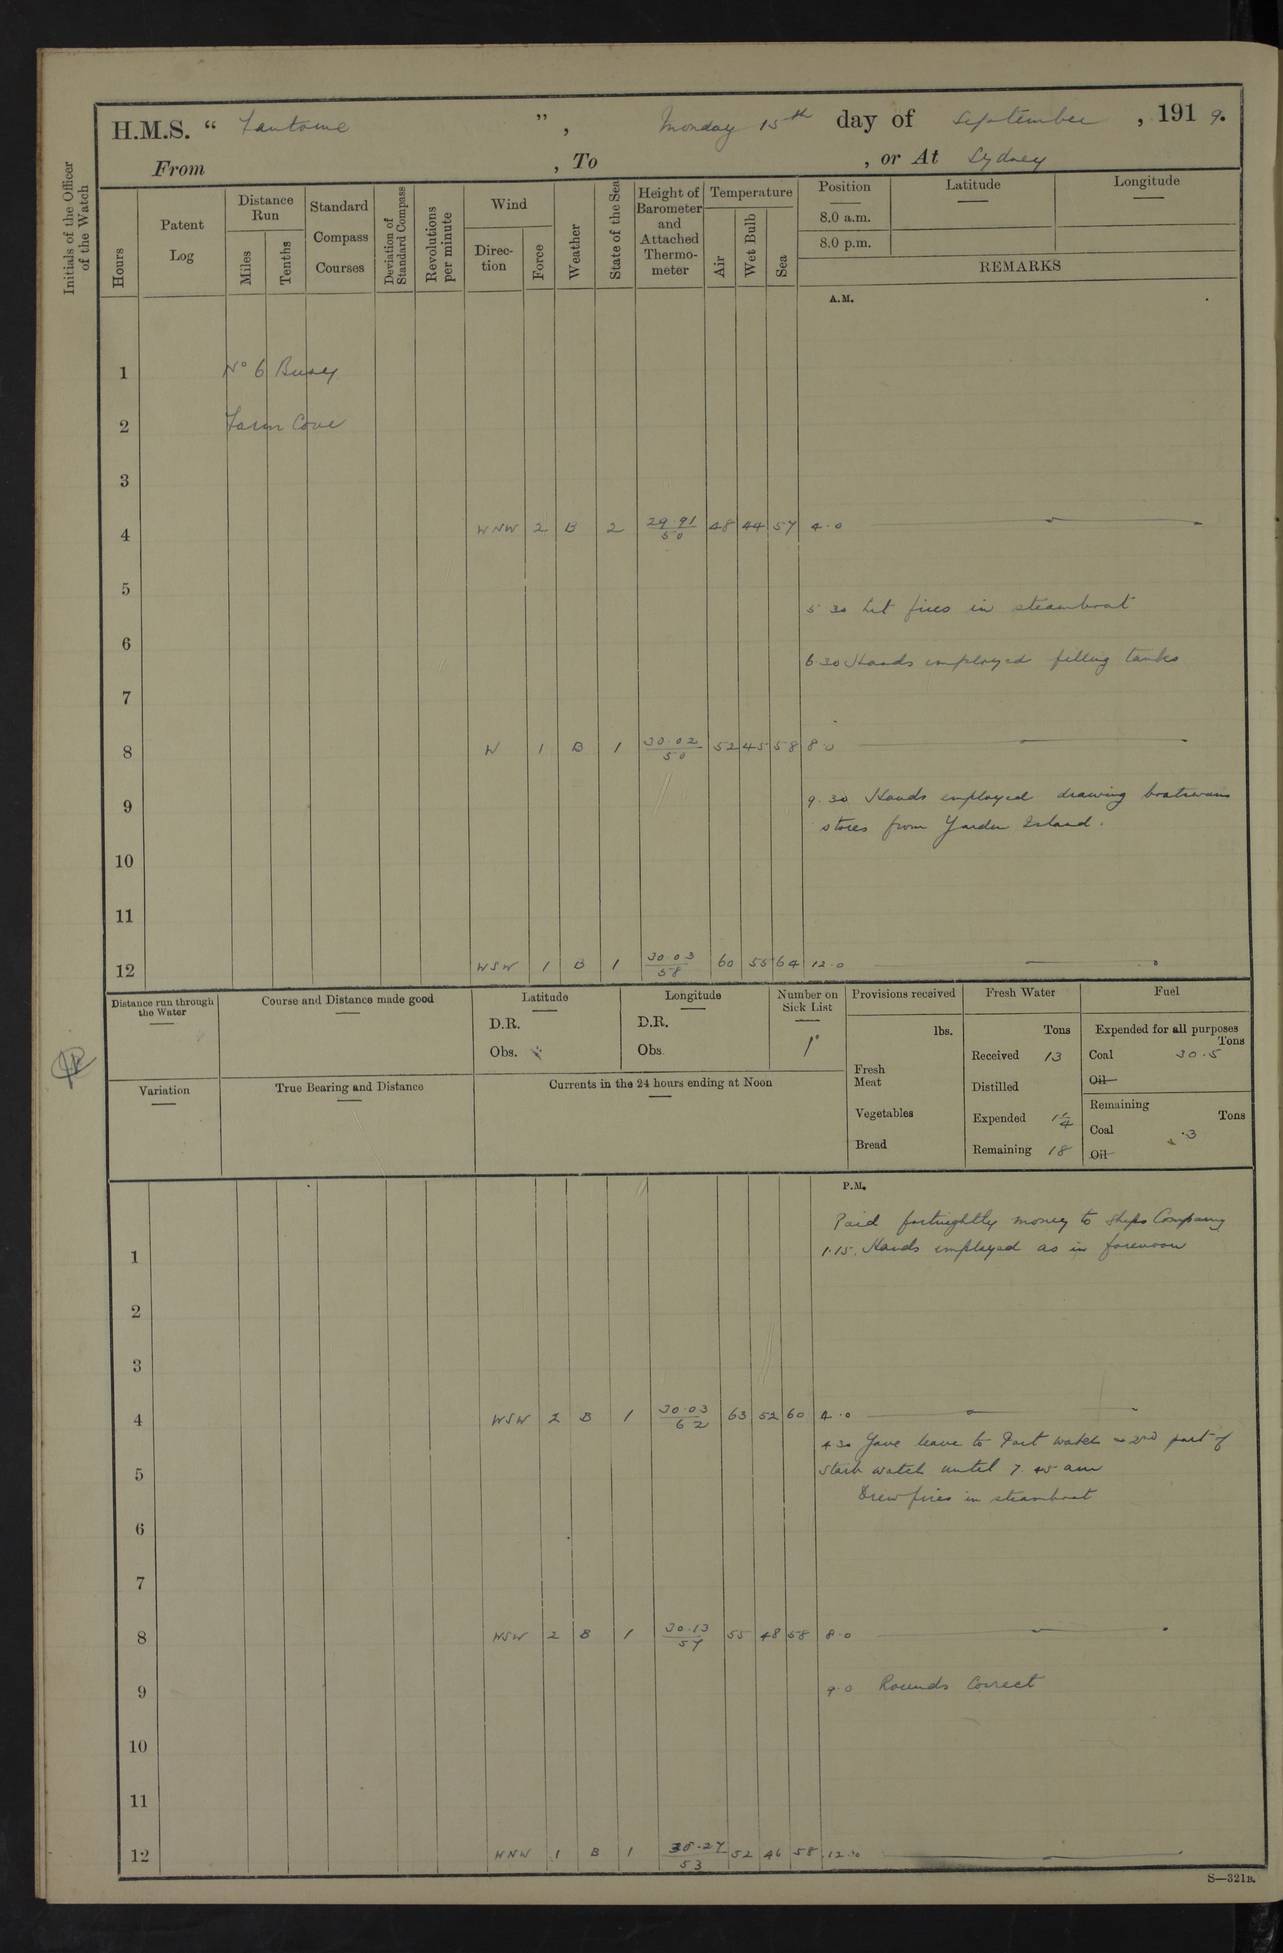 H.M.S. “ Fantome ”, Monday 15th day of September, 1919.
From , To , or At Sydney
Initials of the Officer of the Watch
Hours
Patent Log
Distance Run
Miles
Tenths
Standard Compass Courses
Deviation of Standard Compass
Revolutions per minute
Wind
Direction
Force
Weather
State of the Sea
Height of Barometer and Attached Thermometer
Temperature
Air
Wet Bulb
Sea
Position Latitude Longitude
8.0 a.m.
8.0 p.m.
REMARKS
A.M.
1 No 6 Buoy
2 Farm Cove
3
4 WNW 2 B 2 29.91/50 48 44 57 4.0
5
5 30 Lit fires in steamboat
6
6 30 Hands employed filling tanks
7
8 W 1 B 1 30.02/50 52 45 58 8.0
9
9.30 Hands employed drawing boatswains
stores from Garden Island.
10
11
12 WSW 1 B 1 30.03/58 60 55 64 12.0
Distance run through the Water
Course and Distance made good
Latitude
D.R.
Obs.
Longitude
D.R.
Obs.
Number on Sick List
1
Provisions received
lbs.
Fresh Meat
Vegetables
Bread
Fresh Water
Tons
Received 13
Distilled
Expended 1 1/4
Remaining 18
Fuel
Expended for all purposes
Tons
Coal 30.5
Oil
Remaining
Tons
Coal .3
Oil
Variation
True Bearing and Distance
Currents in the 24 hours ending at Noon
P.M.
Paid fortnightly money to Ships Company
1 1.15. Hands employed as in forenoon
2
3
4 WSW 2 B 1 30.03/62 63 52 60 4.0
4 30 Gave leave to Port watch & 2nd part of
Starb watch until 7.45 am
5
Drew fires in steamboat
6
7
8 WSW 2 B 1 30.13/57 55 48 58 8.0
9 9.0 Rounds Correct
10
11
12 WNW 1 B 1 30.27/53 52 46 58 12.0
S—321B.